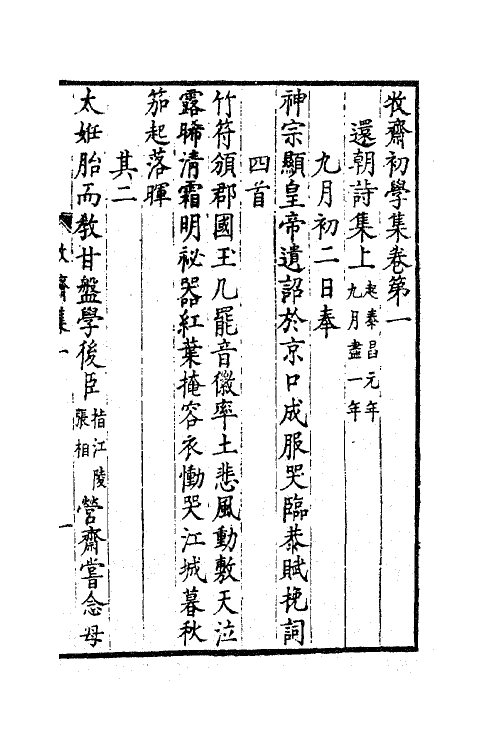 牧齋初學集卷第一
還朝詩集上 起泰昌元年九月盡一年
九月初二日奉
神宗顯皇帝遺詔於京口成服哭臨恭賦挽詞
四首
竹符頒郡國玉几罷音徽率土悲風動敷天泣
露晞清霜明祕器紅葉掩容衣慟哭江城暮秋
笳起落暉
其二
太姙胎而教甘盤學後臣 指江陵張相 營齋嘗念母
牧齋集一
一